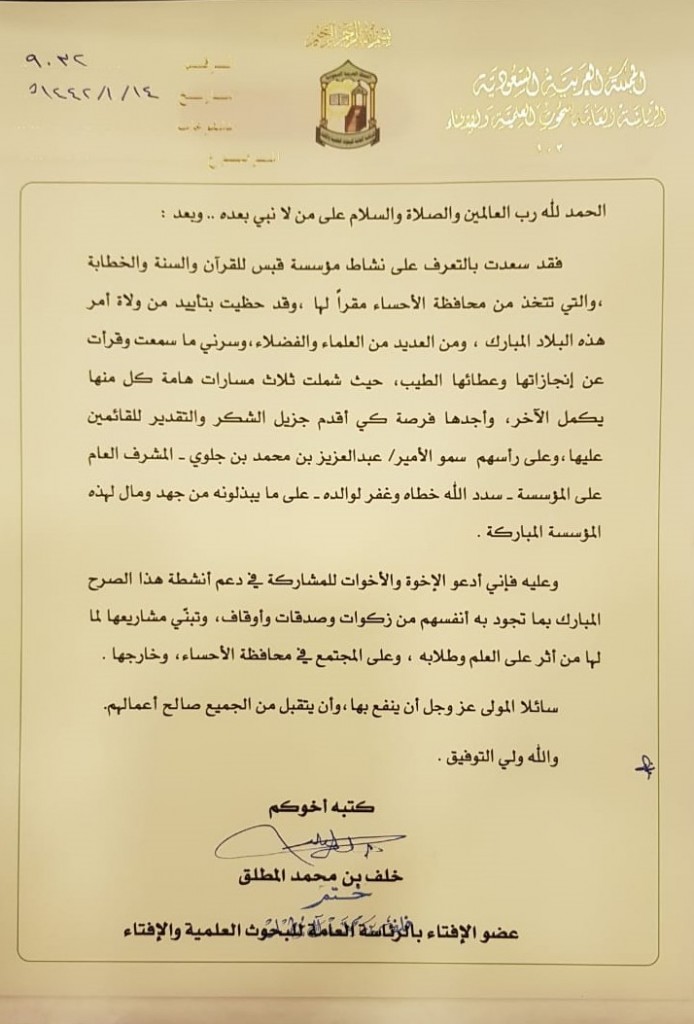 بسم الله الرحمن الرحيم
المملكة العربية السعودية
الرئاسة العامة للبحوث العلمية والإفتاء
١٠٣
٩٠٣٢
١٤٤٢/١/١٤هـ
الحمد لله رب العالمين والصلاة والسلام على من لا نبي بعده .. وبعد :
فقد سعدت بالتعرف على نشاط مؤسسة قبس للقرآن والسنة والخطابة
،والتي تتخذ من محافظة الأحساء مقراً لها ،وقد حظيت بتأييد من ولاة أمر
هذه البلاد المبارك ، ومن العديد من العلماء والفضلاء،وسرني ما سمعت وقرأت
عن إنجازاتها وعطائها الطيب، حيث شملت ثلاث مسارات هامة كل منها
يكمل الآخر، وأجدها فرصة كي أقدم جزيل الشكر والتقدير للقائمين
عليها،وعلى رأسهم سمو الأمير/ عبدالعزيز بن محمد بن جلوي ـ المشرف العام
على المؤسسة ـ سدد الله خطاه وغفر لوالده ـ على ما يبذلونه من جهد ومال لهذه
المؤسسة المباركة .
وعليه فإني أدعو الإخوة والأخوات للمشاركة في دعم أنشطة هذا الصرح
المبارك بما تجود به أنفسهم من زكوات وصدقات وأوقاف، وتبنّي مشاريعها لما
لها من أثر على العلم وطلابه ، وعلى المجتمع في محافظة الأحساء، وخارجها .
سائلا المولى عز وجل أن ينفع بها ،وأن يتقبل من الجميع صالح أعمالهم.
والله ولي التوفيق .
كتبه أخوكم
خلف بن محمد المطلق
ختم
عضو الإفتاء بالرئاسة العامة للبحوث العلمية والإفتاء